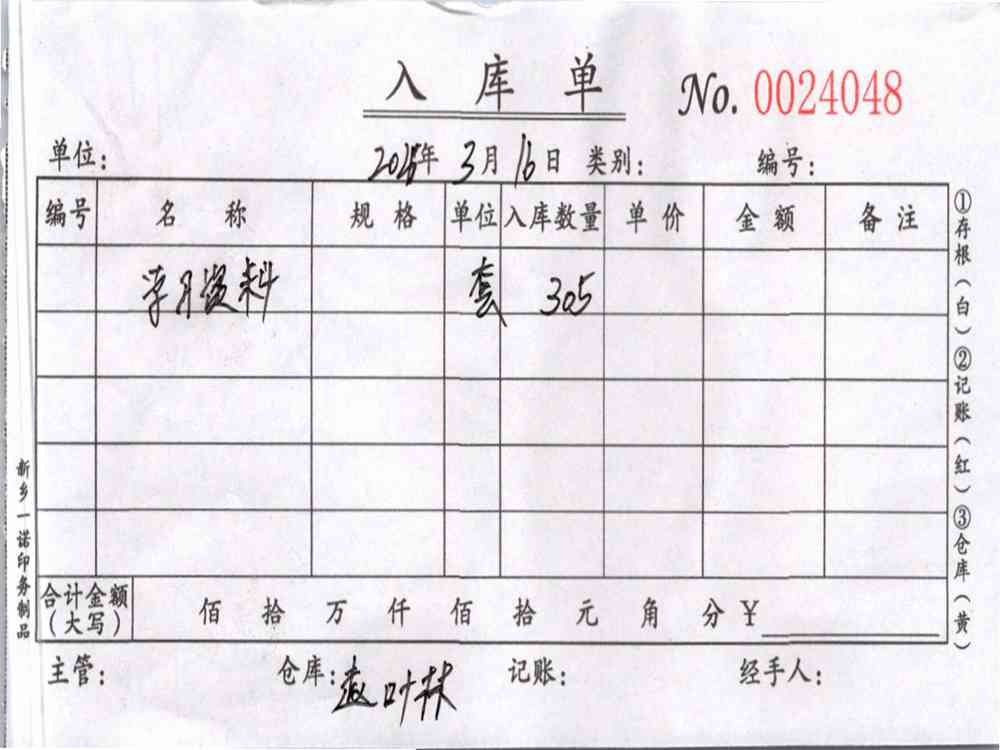 入库单 No. 0024048
单位: 年 3月16日 类别: 编号:
编号 名称 规格 单位 入库数量 单价 金额 备注
学习资料 套 305
合计金额(大写) 佰 拾 万 仟 佰 拾 元 角 分 ¥
主管: 仓库:赵叶林 记账: 经手人:
①存根(白) ②记账(红) ③仓库(黄)
新乡一诺印务制品